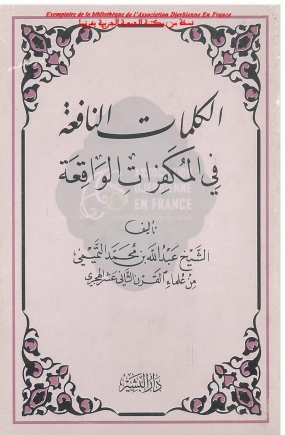 Exemplaire de la bibliothèque de l'Association Djerbienne En France
نسخة من مكتبة الجمعية الجربية بفرنسا
الكلمات النافعة
في المكفرات الواقعة
DJERBIENNE
EN FRANCE
تأليف
الشيخ عبد الله بن محمد التميمي
من علماء القرن الثاني عشر الهجري
دار البشير